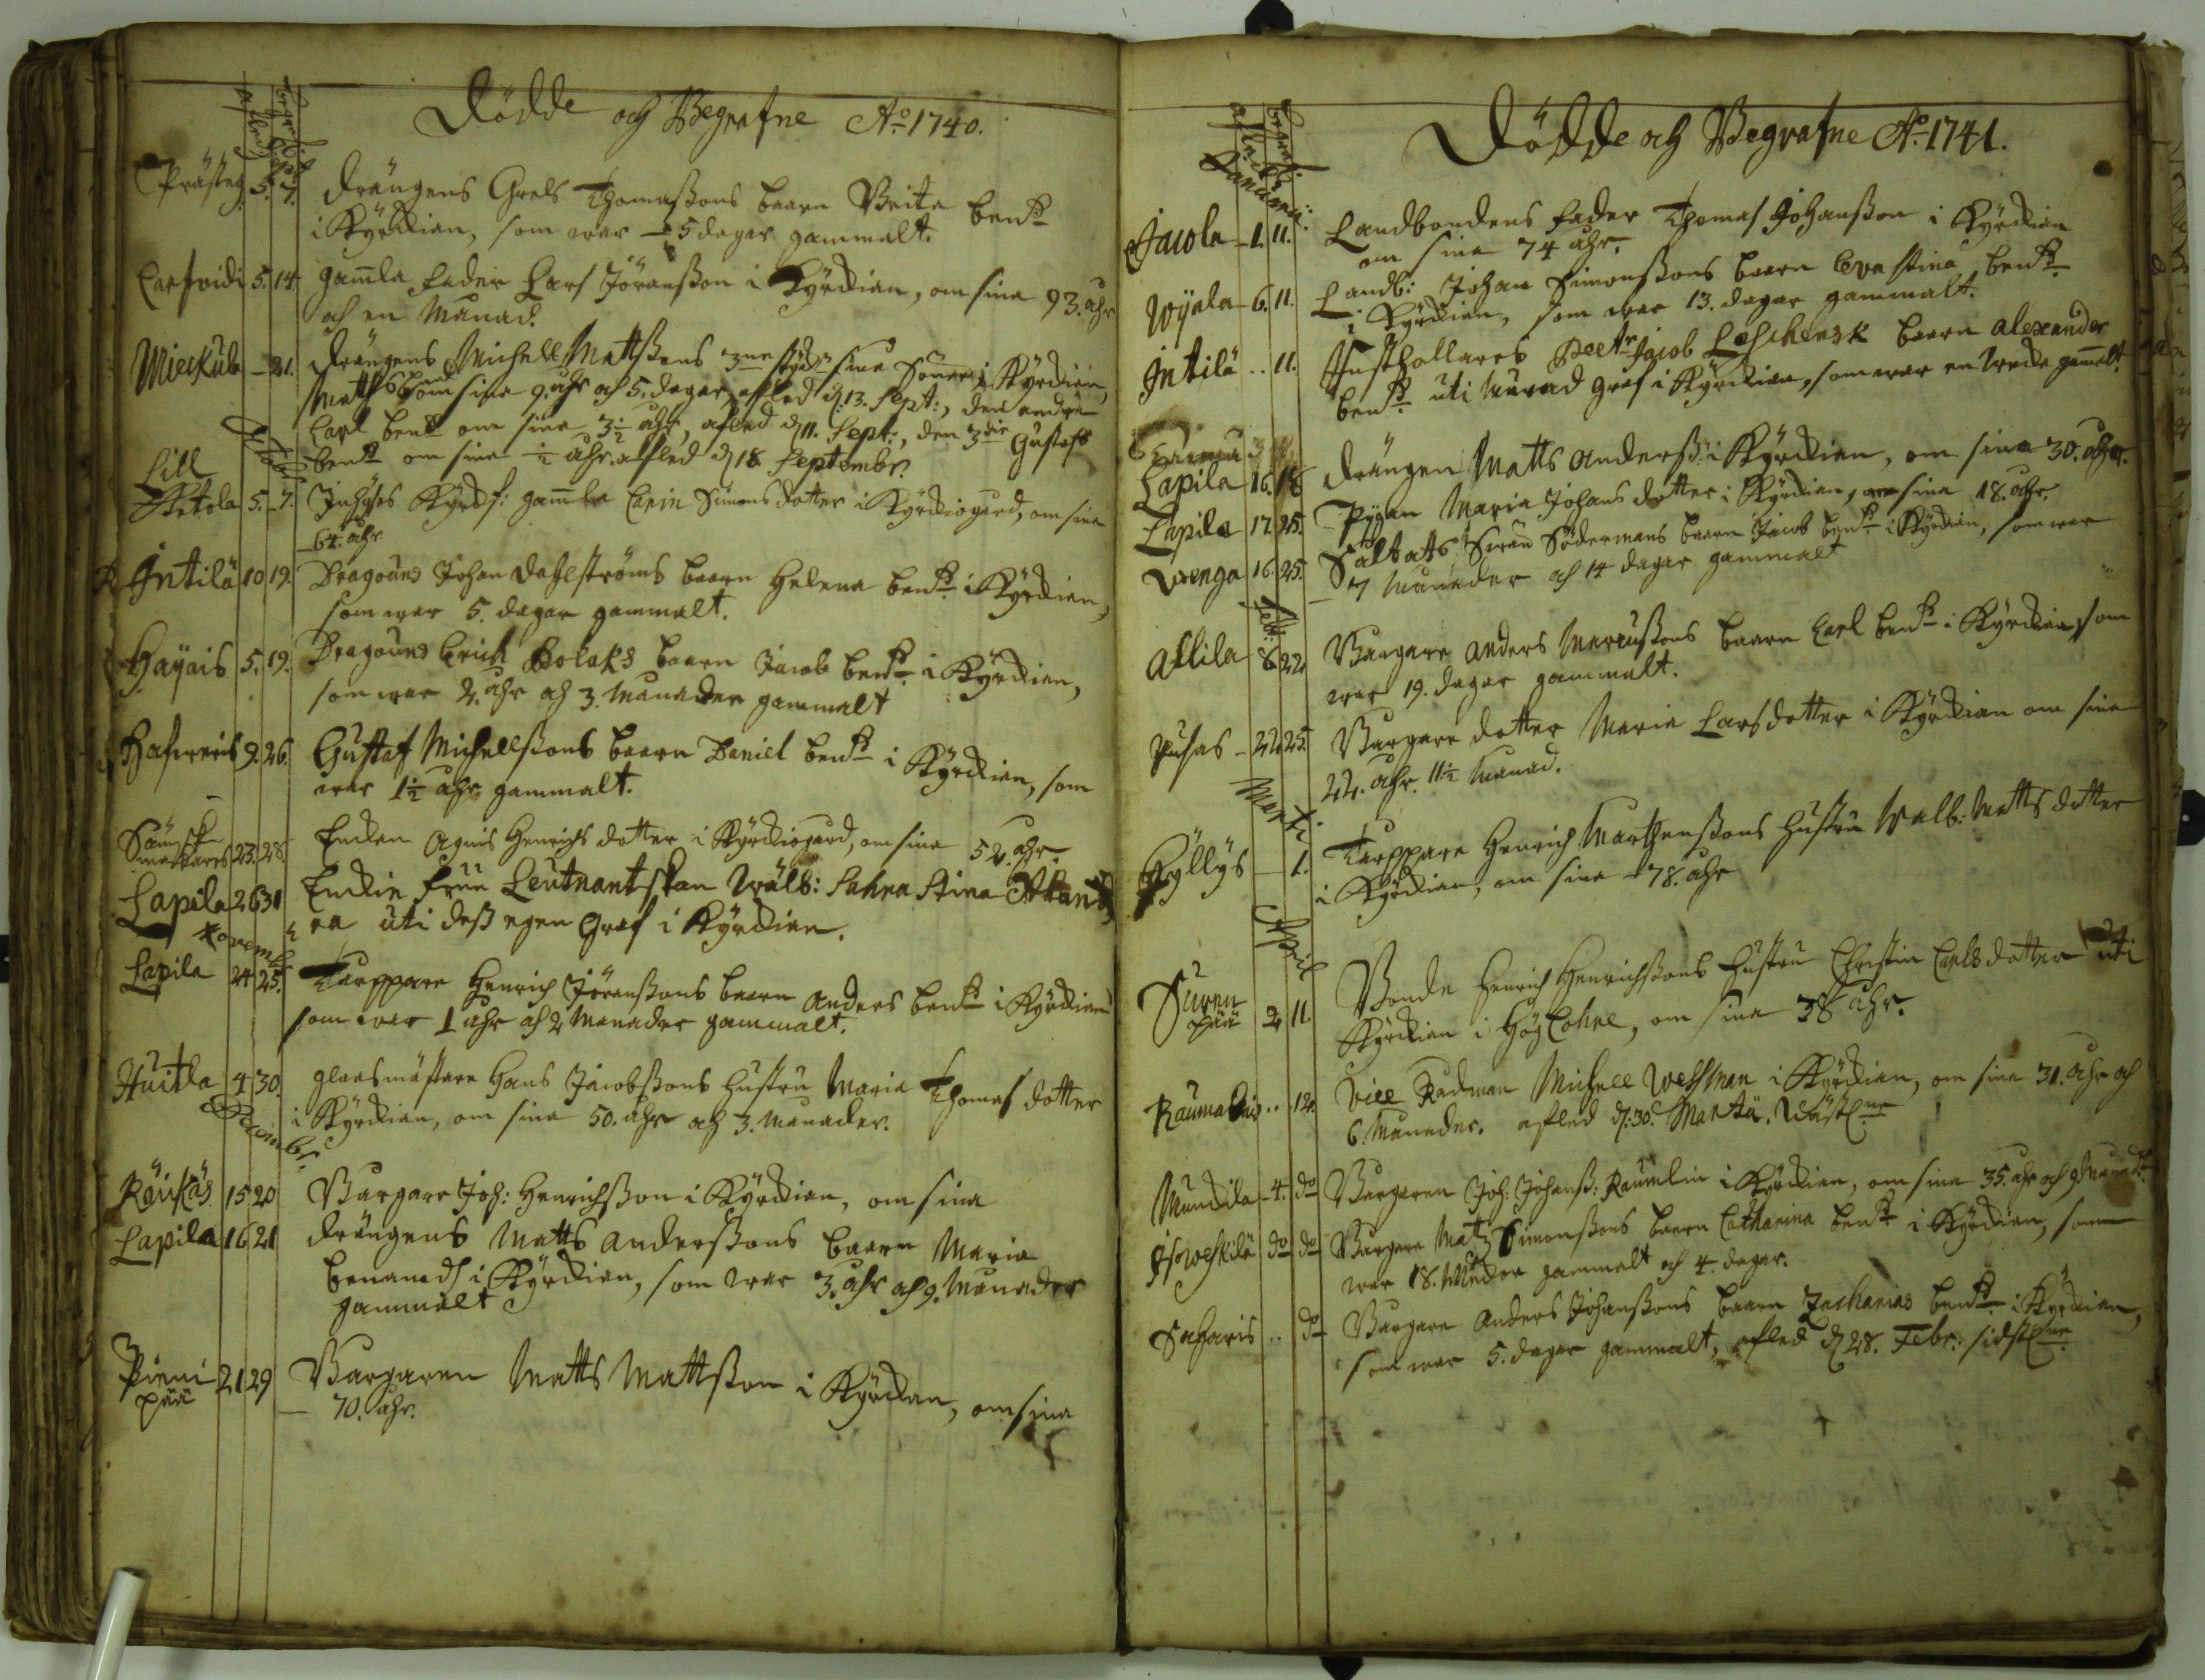 Dödde och Begrafne Ao 1740.
Prästeg. 5. 7. Drängens Grels Thomaßons baarn Brita bend
i Kyrckian, som war 5 dagar gammalt.
Carfvidi 5. 14 gamla fader Lars Jöranßon i Kyrckian, om sina 93. ahr
och en Månad.
Mieckula 21. Drängens Michell Mattßons 3ne styck sina Söner i Kyrckian,
Matts om sina 9. ahr och 5. dagar afled d: 13. Sept:, den andra
Carl bend om sina 3½ ahr, afled d 11. Sept:, den 3die Gustaf
bend om sina ½ ahr. afled d 18 Septembr.
Lill
Ketola 5. 7. Inhyses gamla Carin Simonsdotter i Kyrckiogård, om sina
64. ahr
Intilä 10 19. Dragouns Johan Dahlströms baarn Helena bend i Kyrckian,
som war 5. dagar gammalt.
Hayais 5. 19. Dragouns Erich Bolaks baarn Jacob bend i Kyrckian,
som war 2. ahr och 3. Månader gammalt
9. 26. Gustaf Michellßons baarn Daniel bend i Kyrckian, som
war 1½ ahr gammalt.
23. 28. Enckan Agnis Henrichsdotter i Kyrckiogård, om sina 52. ahr.
Lapila 26 31 Enckie fruu Leutnantskan Wälb: Sahra Stina
uti deß egen Graf i Kyrckian.
Novemb
Lapila 24 25. Torppare Henrich Jöranßons baarn Anders bend i Kyrckian
som war 1 ahr och 2 Månader gammalt.
Huitla 4 30. glaasmästare Hans Jacobßons hustru Maria Thomasdotter
i Kyrckian, om sina 50. ahr och 3. Månader.
Decembr.
15 20 Bargare Joh: Henrichßon i Kyrckian, om sina
Lapila 16 21 Drängens Matts Anderßons baarn Maria
benamd i Kyrckian, som war 3. ahr och 9. Månader
gammalt
Pieni
pää 21 29 Bargaren Matts Mattßon i Kyrckan, om sina
70. ahr.
Dödde och Begrafne Ao 1741.
Januarii
Jacola 1. 11. Landbondens fader Thomas Johanßon i Kyrckian
om sina 74 ahr.
Wyala 6. 11. Landb: Johan Simonßons baarn Eva Stina bend
i Kyrckian, som war 13. dagar gammalt.
Intilä .. 11. Rusthollares Peetr Jacob Leschensk baarn Alexander
bend uti Murad graf i Kyrckian, som war en wecka gamalt.
Lapila 16. 18 Drängen Matts Anderß: i Kyrckian, om sina 30. ahr.
Lapila 17 25. Pygan Maria Johansdotter i Kyrckian, om sina 18. ahr.
Wenga 16. 25. Södermans baarn Jacob bend i Kyrckian, som war
7 Månader och 14 dagar gammalt
Febr:
Allila 8 22 Bargare Anders Marcußons baarn Carl bend i Kyrckian som
war 19. dagar gammalt.
Puhas 22 25. Bargare dotter Maria Larsdotter i Kyrckian om sina
22. ahr. 11½ Månad.
Marti
Kyllys 1. Torppare Henrich Marthenßons hustru Walb: Mattsdotter
i Kyrckian, om sina 78. ahr
April
Suren
pää 2 11. Bonde Henrich Henrichßons hustru Christin Carlsdotter uti
Kyrckian i Hög Cohre, om sina 38 ahr.
.. 12. Vice Radman Michell Weßman i Kyrckian, om sina 31. ahr och
6. Månader. afled d: 30. Martii.
Mundila 4. do Bargaren Joh: Johanß: Raumlin i Kyrckian, om sina 35. ahr och 9 Månadr
do do Bargare Matz Simonßons baarn Catharina bend i Kyrckian, som
war 18. Månder gammalt och 4 dagar.
Saharis .. do Bargare Anders Johanßons baarn Zacharias bend i Kyrckian,
som war 5. dagar gammalt, afled d 28. Febr: